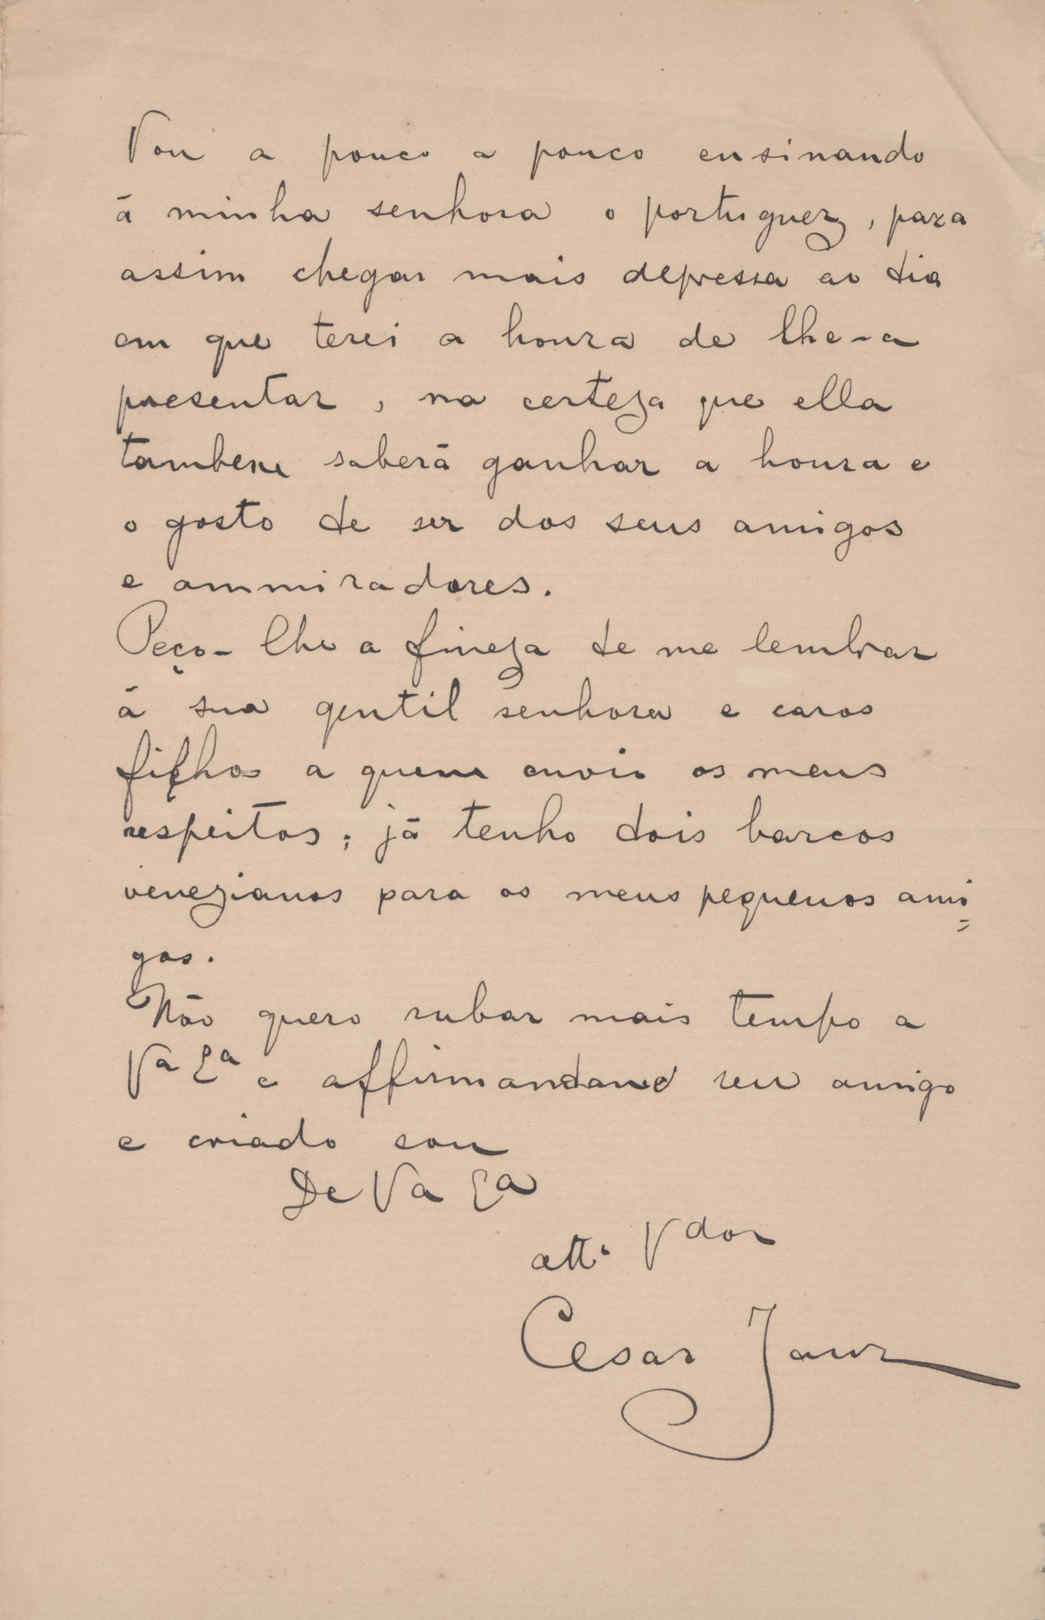 Vou a pouco a pouco ensinando
á minha senhora o portuguez, para
assim chegar mais depressa ao dia
em que terei a honra de lhe-a
presentar, na certeza que ella
tambem saberá ganhar a honra e
o gosto de ser dos seus amigos
e ammiradores.
Peço-lhe a fineza de me lembrar
á sua gentil senhora e caros
filhos a quem envio os meus
respeitos; já tenho dois barcos
venezianos para os meus pequenos ami=
gos.
Não quero rubar mais tempo a
Vª Eª e affirmandome seu amigo
e criado sou
De Va Ea
attº Vdor
Cesar